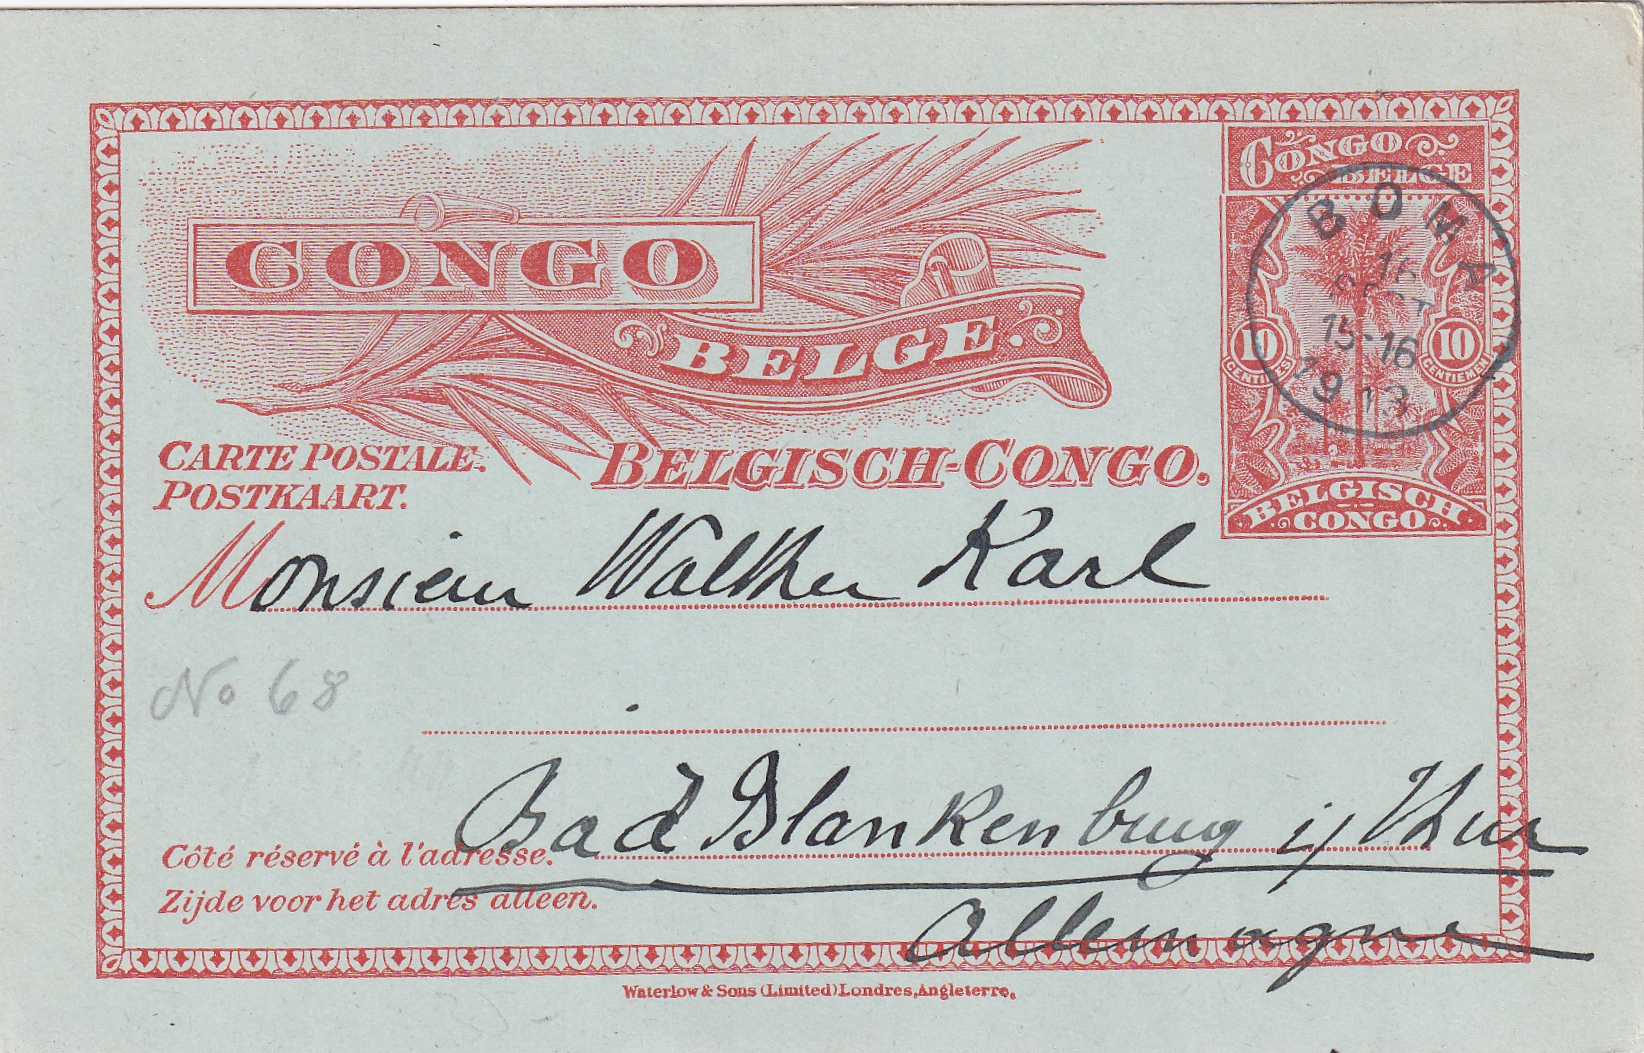 CONGO
BELGE.
CONGO
BELGE
BOMA
16
OCT
15-16
1913
10 10
CENTIMES CENTIEMEN
BELGISCH
CONGO
CARTE POSTALE.
POSTKAART.
BELGISCH-CONGO.
Monsieur Walther Karl
No 68
Bad Blankenburg i/ Thur
Côté réservé à l'adresse.
Zijde voor het adres alleen.
Allemagne
Waterlow & Sons (Limited) Londres, Angleterre.